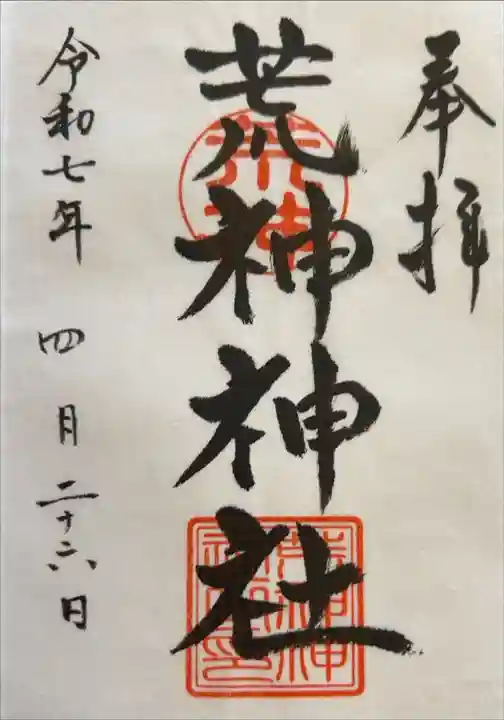 奉拝
荒神神社
荒神
荒神神社之印
令和七年 四月二十六日